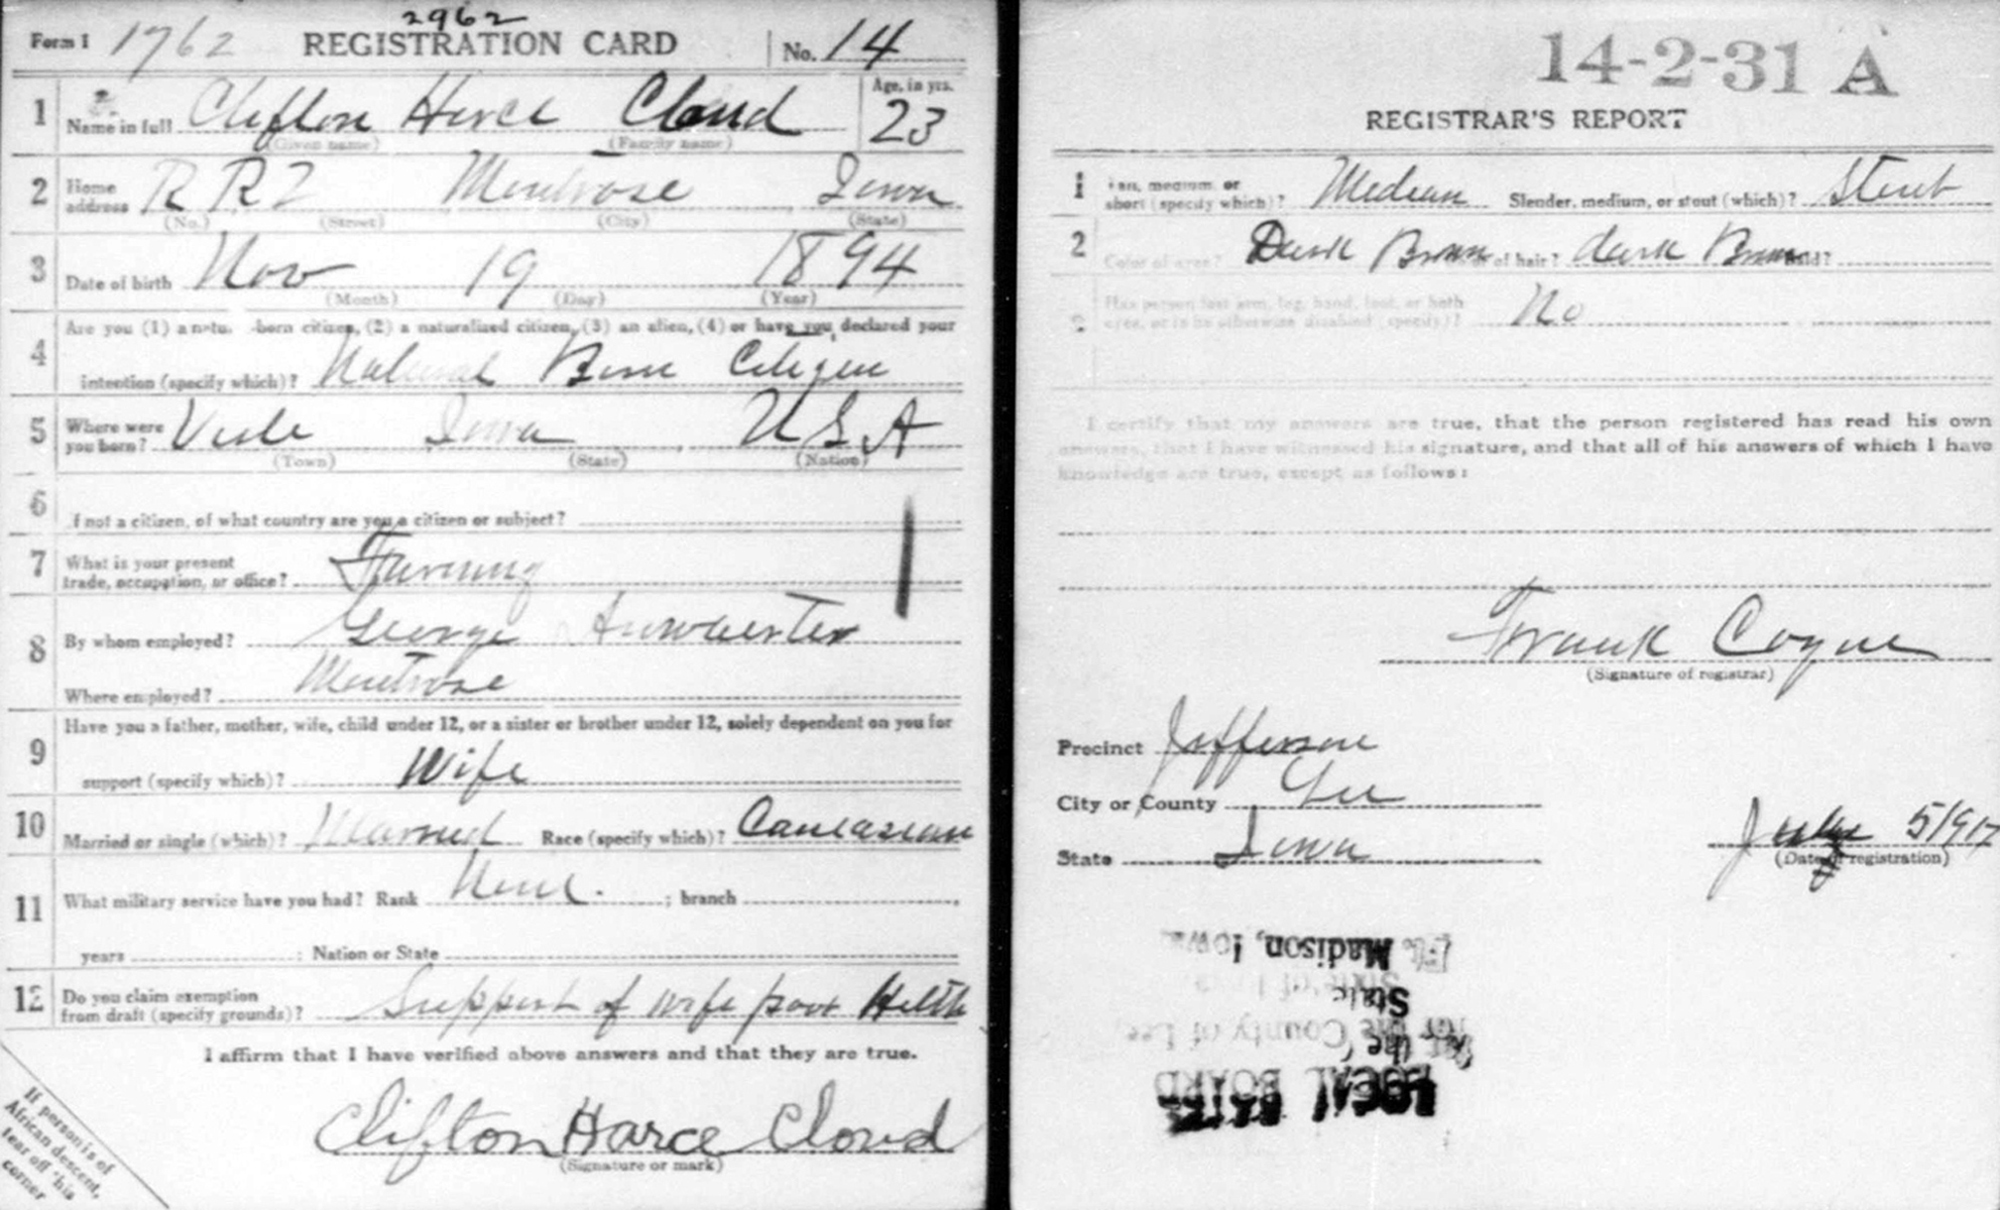 2962
Form 1 1762 REGISTRATION CARD No. 14
1 Name in full Clifton Harce Cloud Age, in yrs. 23
(Given name) (Family name)
2 Home address R R 2 Montrose Iowa
(No.) (Street) (City) (State)
3 Date of birth Nov 19 1894
(Month) (Day) (Year)
Are you (1) a natu born citizen, (2) a naturalized citizen, (3) an alien, (4) or have you declared your
4 intention (specify which)? Natural Born Citizen
5 Where were you born? Iowa USA
(Town) (State) (Nation)
6 If not a citizen, of what country are you a citizen or subject?
7 What is your present trade, occupation, or office? Farming
8 By whom employed? George
Where employed? Montrose
Have you a father, mother, wife, child under 12, or a sister or brother under 12, solely dependent on you for
9 support (specify which)? Wife
10 Married or single (which)? Married Race (specify which)? Caucasian
11 What military service have you had? Rank None. ; branch
years ; Nation or State
12 Do you claim exemption from draft (specify grounds)? Support of wife poor Helth
I affirm that I have verified above answers and that they are true.
Clifton Harce Cloud
(Signature or mark)
If person is of
African descent,
tear off this
corner
14-2-31 A
REGISTRAR'S REPORT
1 Tall, medium, or short (specify which)? Medium Slender, medium, or stout (which)? Stout
2 Color of eyes? Dark Brown of hair? dark Brown Bald?
3 Has person lost arm, leg, hand, foot, or both eyes, or is he otherwise disabled (specify)? No
I certify that my answers are true, that the person registered has read his own
answers, that I have witnessed his signature, and that all of his answers of which I have
knowledge are true, except as follows:
Frank Coyne
(Signature of registrar)
Precinct Jefferson
City or County Lee
State Iowa
June 5/917
(Date of registration)
LOCAL BOARD
for the County of Lee
State of Iowa
Ft. Madison, Iowa